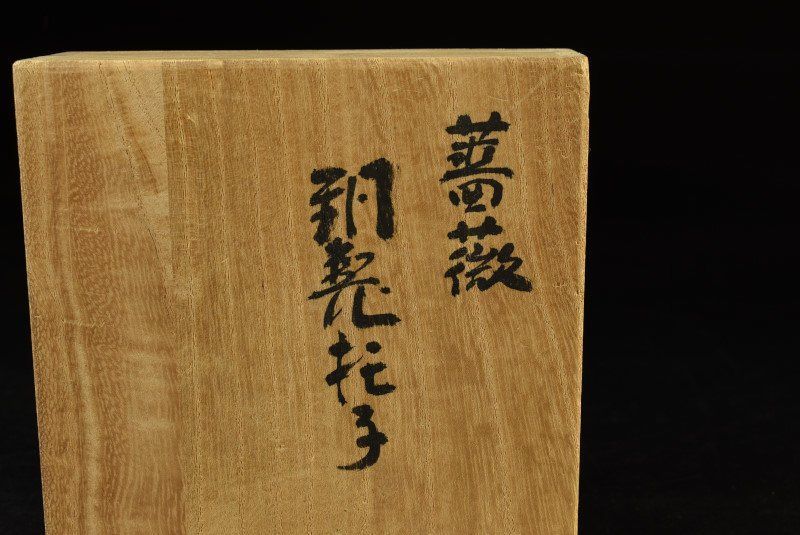 薔薇
銅製托子